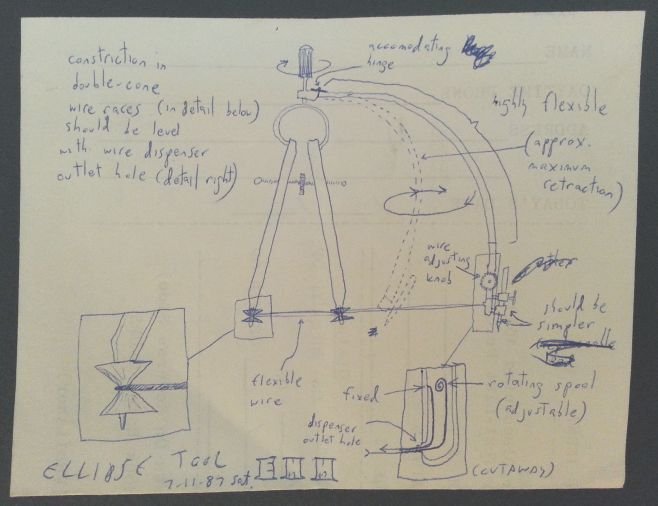 constriction in
double-cone
wire races (in detail below)
should be level
with wire dispenser
outlet hole (detail right)
accomodating
hinge
highly flexible
(approx.
maximum
retraction)
wire
adjusting
knob
should be
simpler
flexible
wire
fixed
rotating spool
(adjustable)
dispenser
outlet hole
(CUTAWAY)
ELLIPSE TOOL
7-11-87 sat.